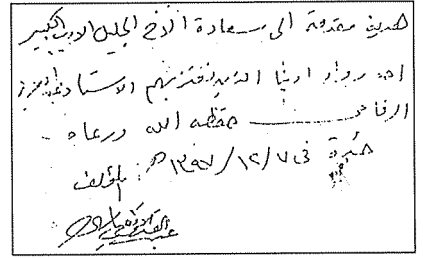 هدية مقدمة الى سعادة الاخ الجليل الاديب الكبير
احد رواد ادبنا الذين نفتخر بهم الاستاذ عبدالعزيز
الرفاعي حفظه الله ورعاه
في ٧/١٢/١٣٩٧هـ المؤلف